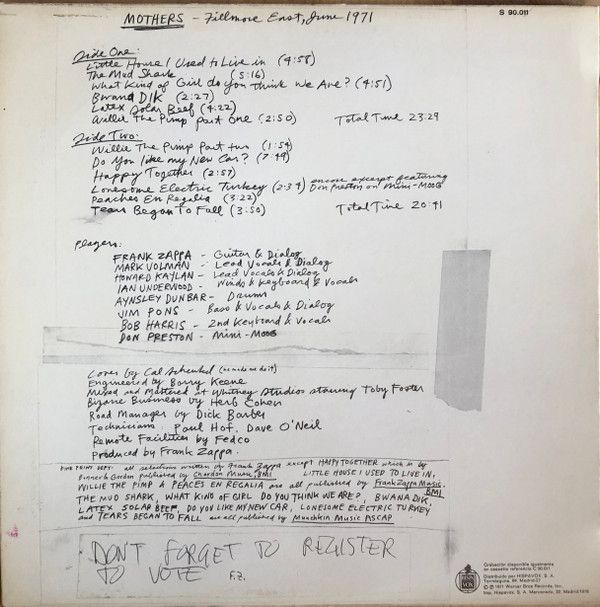 MOTHERS - Fillmore East, June 1971
S 90.011
Side One:
Little House I Used to Live in (4:58)
The Mud Shark (5:16)
What Kind of Girl do You think we Are? (4:51)
Bwana DIK (2:27)
Latex Solar Beef (4:22)
Willie The Pimp part one (2:50) Total Time 23:29
Side Two:
Willie The Pimp Part two (1:54)
Do You like my New Car? (7:49)
Happy Together (2:57)
Lonesome Electric Turkey (2:34) encore excerpt featuring Don Preston on Mini-Moog
Peaches En Regalia (3:22)
Tears Began To Fall (3:50) Total Time 20:41
Players:
FRANK ZAPPA - Guitar & Dialog
MARK VOLMAN - Lead Vocals & Dialog
HOWARD KAYLAN - Lead Vocals & Dialog
IAN UNDERWOOD - Winds & Keyboard & Vocals
AYNSLEY DUNBAR - Drums
JIM PONS - Bass & Vocals & Dialog
BOB HARRIS - 2nd Keyboard & Vocals
DON PRESTON - Mini-Moog
Cover by Cal Schenkel (he made me do it)
Engineered by Barry Keene
Mixed and Mastered at Whitney Studios starring Toby Foster
Bizarre Business by Herb Cohen
Road Manager by Dick Barber
Technicians: Paul Hof, Dave O'Neil
Remote Facilities by Fedco
Produced by Frank Zappa.
FINE PRINT DEPT: all selections written by Frank Zappa except HAPPY TOGETHER which is by
Bonner & Gordon published by Chardon Music, BMI LITTLE HOUSE I USED TO LIVE IN,
WILLIE THE PIMP & PEACES EN REGALIA are all published by Frank Zappa Music, BMI
THE MUD SHARK, WHAT KIND OF GIRL DO YOU THINK WE ARE?, BWANA DIK,
LATEX SOLAR BEEF, DO YOU LIKE MY NEW CAR, LONESOME ELECTRIC TURKEY
and TEARS BEGAN TO FALL are all published by Munchkin Music ASCAP
DON'T FORGET TO REGISTER
TO VOTE F.Z.
HISPA
VOX
Grabación disponible igualmente
en cassette referencia C 90.011
Distribuido por HISPAVOX, S. A.
Torrelaguna, 64. Madrid-27
℗ © 1971 Warner Bros Records Inc.